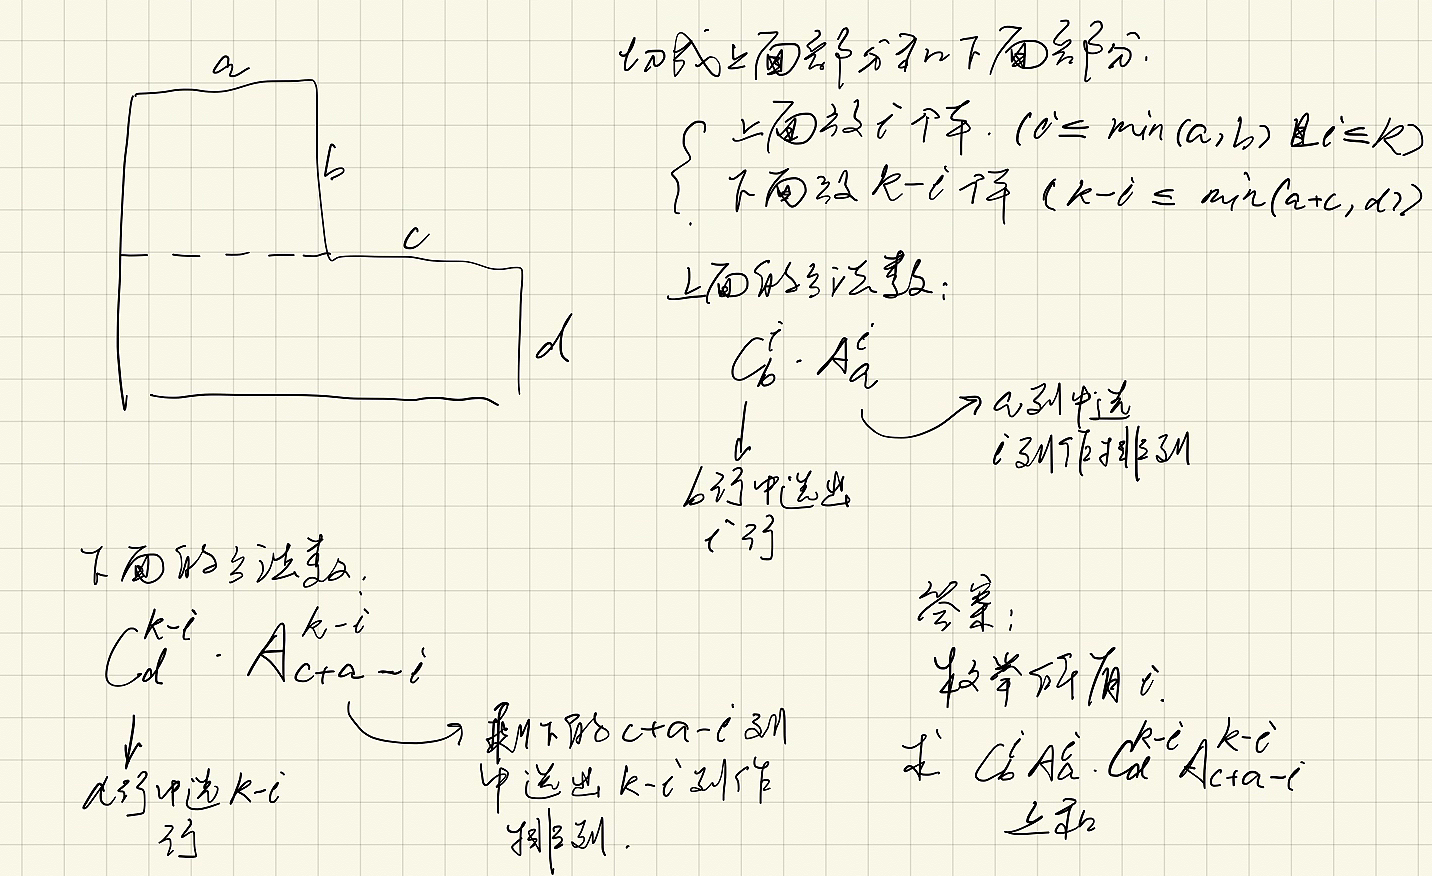 a
b
c
d
切成上面部分和下面部分.
上面放 i 个车. (i ≤ min(a,b) 且 i ≤ k)
下面放 k-i 个车 (k-i ≤ min(a+c, d))
上面的方法数:
C_b^i · A_a^i
a列中选
i列作排列
b行中选出
i行
下面的方法数:
C_d^{k-i} · A_{c+a-i}^{k-i}
d行中选 k-i
行
剩下的 c+a-i 列
中选出 k-i 列作
排列.
答案:
枚举所有 i.
求 C_b^i A_a^i · C_d^{k-i} A_{c+a-i}^{k-i}
之和